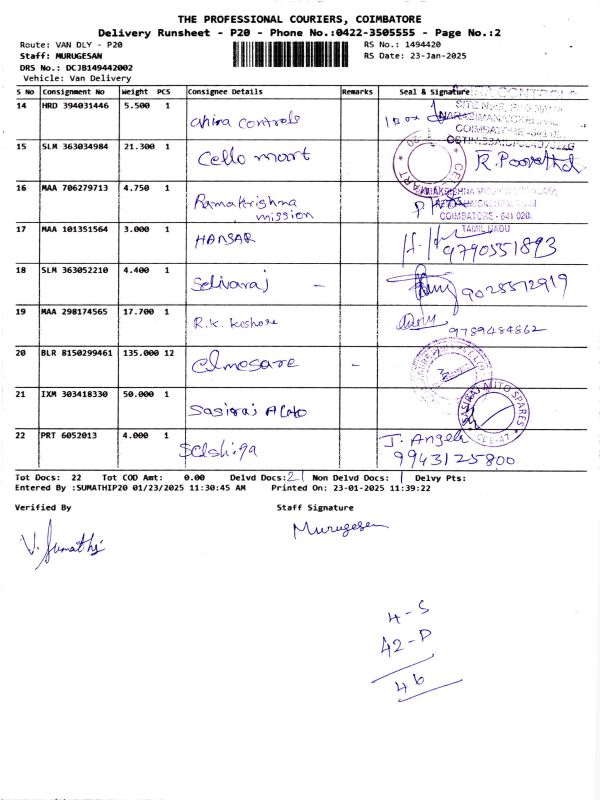 THE PROFESSIONAL COURIERS, COIMBATORE
Delivery Runsheet - P20 - Phone No.:0422-3505555 - Page No.:2
Route: VAN DLY - P20 RS No.: 1494420
Staff: MURUGESAN RS Date: 23-Jan-2025
DRS No.: DCJB149442002
Vehicle: Van Delivery
S No Consignment No Weight PCS Consignee Details Remarks Seal & Signature
14 HRD 394031446 5.500 1 controls 1 Box
COIMBATORE
15 SLM 363034984 21.300 1 Cello mart R. Poovathal
16 MAA 706279713 4.750 1 Ramakrishna
mission
COIMBATORE - 641 020.
TAMIL NADU
17 MAA 101351564 3.000 1 HANSAR 9790551893
18 SLM 363052210 4.400 1 Selvaraj - 9028572919
19 MAA 298174565 17.700 1 R.K. kishore 9789484862
20 BLR 8150299461 135.000 12 elmosare -
21 IXM 303418330 50.000 1 Sasiraj Auto SASIRAJ AUTO SPARES
CBE-47
22 PRT 6052013 4.000 1 J. Angela
9943125800
Tot Docs: 22 Tot COD Amt: 0.00 Delvd Docs: 21 Non Delvd Docs: 1 Delvy Pts:
Entered By :SUMATHIP20 01/23/2025 11:30:45 AM Printed On: 23-01-2025 11:39:22
Verified By Staff Signature
V. Sumathi Murugesan
4-S
42-D
46